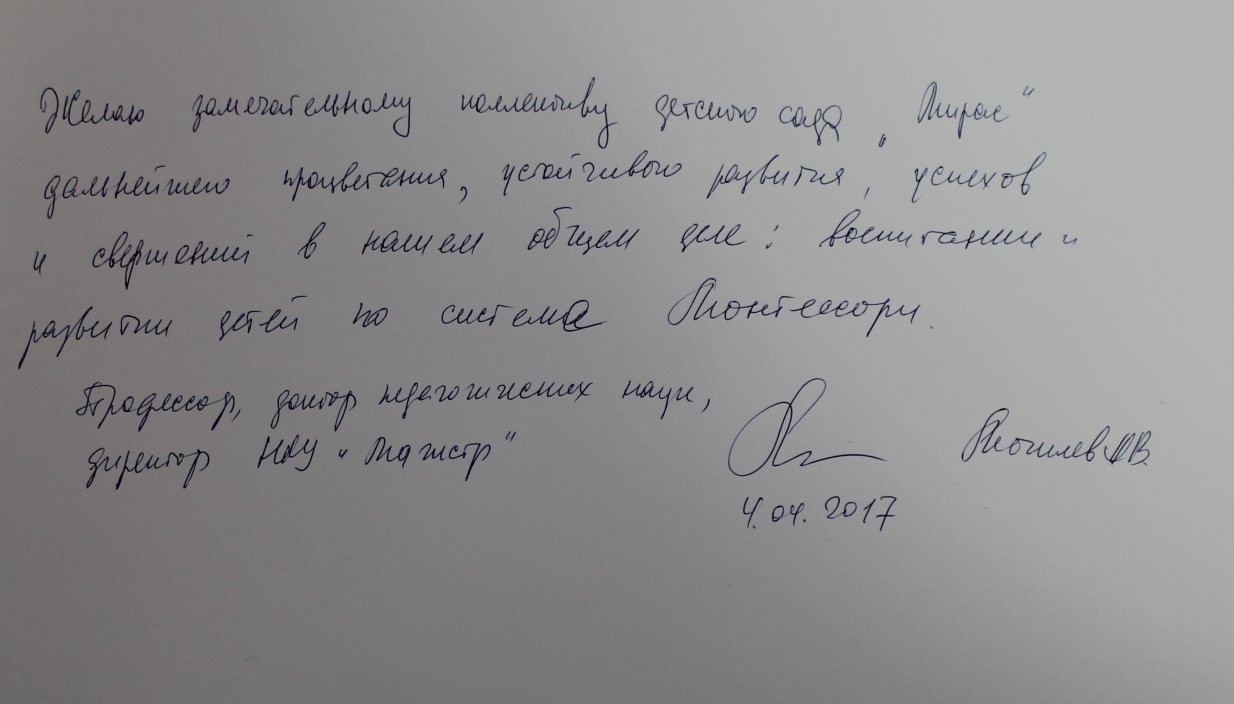 Желаю замечательному коллективу детского сада „Мирас“
дальнейшего процветания, устойчивого развития, успехов
и свершений в нашем общем деле: воспитании и
развитии детей по система Монтессори.
Профессор, доктор педагогических наук,
директор НОУ „Магистр“
Могилев А.В.
4.04.2017